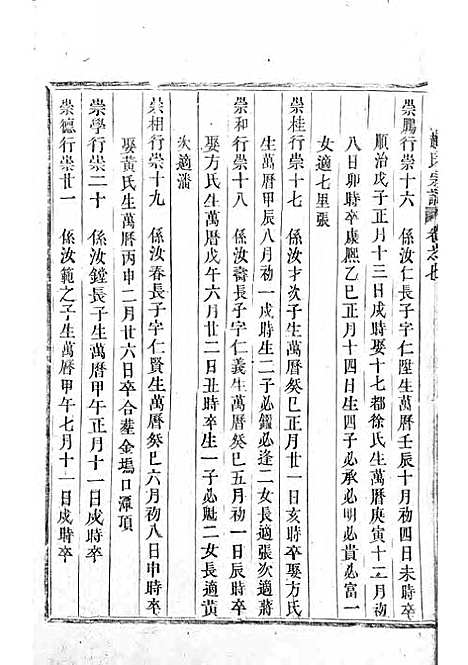 氏宗譜 卷之七
崇鵬行崇十六 係汝仁長子字仁陞生萬曆壬辰十月初四日未時卒
順治戊子正月十三日戌時娶十七都徐氏生萬曆庚寅十二月初
八日卯時卒康熙乙巳正月十四日生四子必承必明必貴必富一
女適七里張
崇桂行崇十七 係汝才次子生萬曆癸巳正月廿一日亥時卒娶方氏
生萬曆甲辰八月初一戌時生二子必鑑必逢二女長適張次適蔣
崇和行崇十八 係汝壽長子字仁義生萬曆癸巳五月初一日辰時卒
娶方氏生萬曆戊午六月廿二日丑時卒生一子必魁二女長適黃
次適潘
崇相行崇十九 係汝春長子字仁賢生萬曆癸巳六月初八日申時卒
娶黃氏生萬曆丙申二月廿六日卒合葬金塢口潭項
崇學行崇二十 係汝鏜長子生萬曆甲午正月十一日戌時卒
崇德行崇廿一 係汝範之子生萬曆甲午七月十一日戌時卒